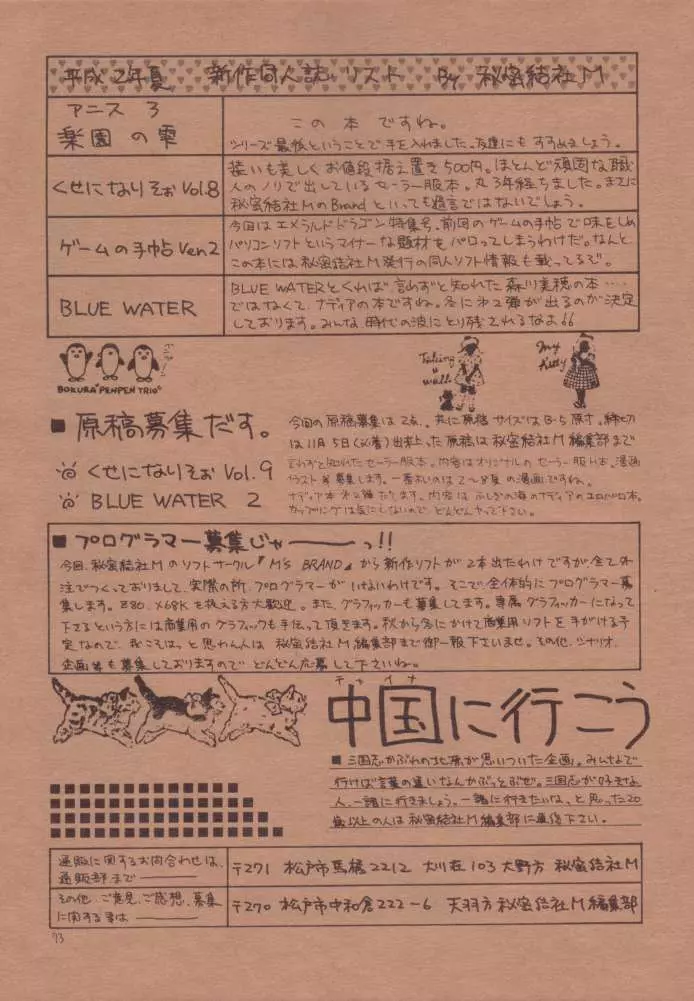 平成2年夏 新作同人誌リスト By 秘密結社M
アニス 3
楽園の雫
この本ですね。
シリーズ最後ということで手を入れました。友達にもすすめましょう。
くせになりそぉ Vol.8
装いも美しくお値段据え置き500円。ほとんど頑固な職
人のノリで出しているセーラー服本。丸3年経ちました。まさに
秘密結社MのBrandといっても過言ではないでしょう。
ゲームの手帖 Ven2
今回はエメラルドドラゴン特集号。前回のゲームの手帖で味をしめ
パソコンソフトというマイナーな題材をパロってしまうわけだ。なんと
この本には秘密結社M発行の同人ソフト情報も載ってるぞ。
BLUE WATER
BLUE WATERとくれば言わずと知れた森川美穂の本‥‥
ではなくて、ナディアの本ですね。冬に第2弾が出るのが決定
しております。みんな時代の波にとり残されるなよ
BOKURA PENPEN TRIO
Taking a walk
My Kitty
■原稿募集だす。
くせになりそぉ Vol.9
BLUE WATER 2
今回の原稿募集は2点。共に原稿サイズはB-5原寸。締切
は11月5日(必着)出来上った原稿は秘密結社M編集部まで
言わずと知れたセーラー服本。内容はオリジナルのセーラー服H本。漫画
イラスト等募集します。一番よいのは2〜8頁の漫画ですね。
ナディア本第2弾だします。内容はふしぎの海のナディアのエロパロ本。
カップリングは気にしないのでどんどんやって下さい。
■プログラマー募集じゃーっ!!
今回、秘密結社Mのソフトサークル『M's BRAND』から新作ソフトが2本出たわけですが、全て外
注でつくっておりまして、実際の所、プログラマーがいないわけです。そこで、全体的にプログラマー募
集します。Z80、X68Kを扱える方大歓迎。また、グラフィッカーも募集してます。専属グラフィッカーになって
下さるという方には商業用のグラフィックも手伝って頂きます。秋から冬にかけて商業用ソフトを手がける予
定なので、我こそはっと思わん人は秘密結社M編集部まで御一報下さいませ。その他、シナリオ、
企画等も募集しておりますのでどんどん応募して下さいね。
チャイナ
中国に行こう
■三国志かぶれの地原が思いついた企画。みんなで
行けば言葉の違いなんかぶっとぶぜ。三国志が好きな
人、一諸に行きましょう。一諸に行きたいな、と思った20
歳以上の人は秘密結社M編集部に返信下さい。
通販に関するお問合わせは、
通販部まで
〒271 松戸市馬橋2212 大川荘103 大野方 秘密結社M
その他、ご意見、ご感想、募集
に関する事は
〒270 松戸市中和倉222-6 天羽方 秘密結社M編集部
93